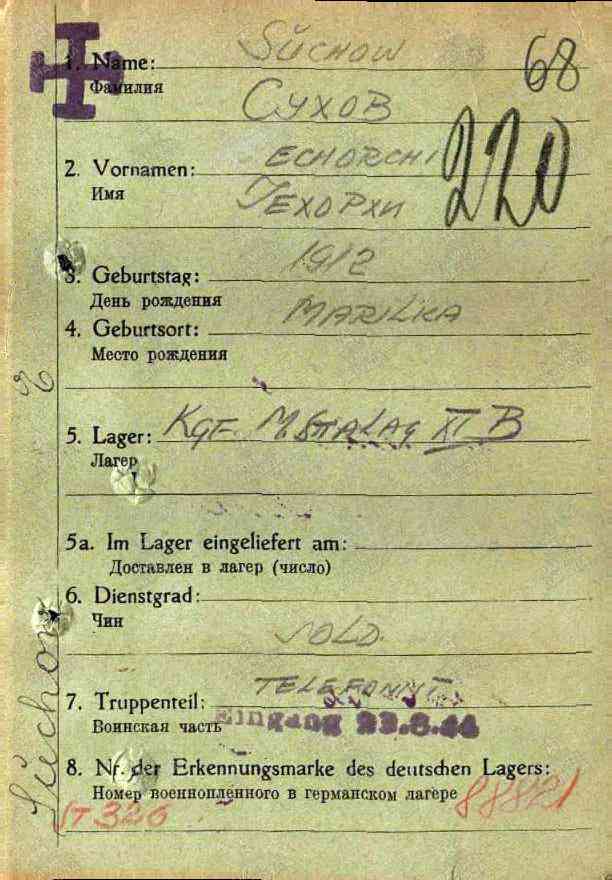 SÜCHOW
68
1. Name:
Фамилия
СУХОВ
220
2. Vornamen: ECHORCHI
Имя
ГЕХОРХИ
3. Geburtstag: 1912
День рождения
4. Geburtsort: MARILKA
Место рождения
5. Lager: KGF. M STALAG XI B
Лагер
5a. Im Lager eingeliefert am:
Доставлен в лагер (число)
6. Dienstgrad:
Чин
SOLD.
7. Truppenteil: TELEFONIST
Воинская часть
Eingang 23.6.44
8. Nr. der Erkennungsmarke des deutschen Lagers:
Номер военнопленного в германском лагере
ST 326
Süchow